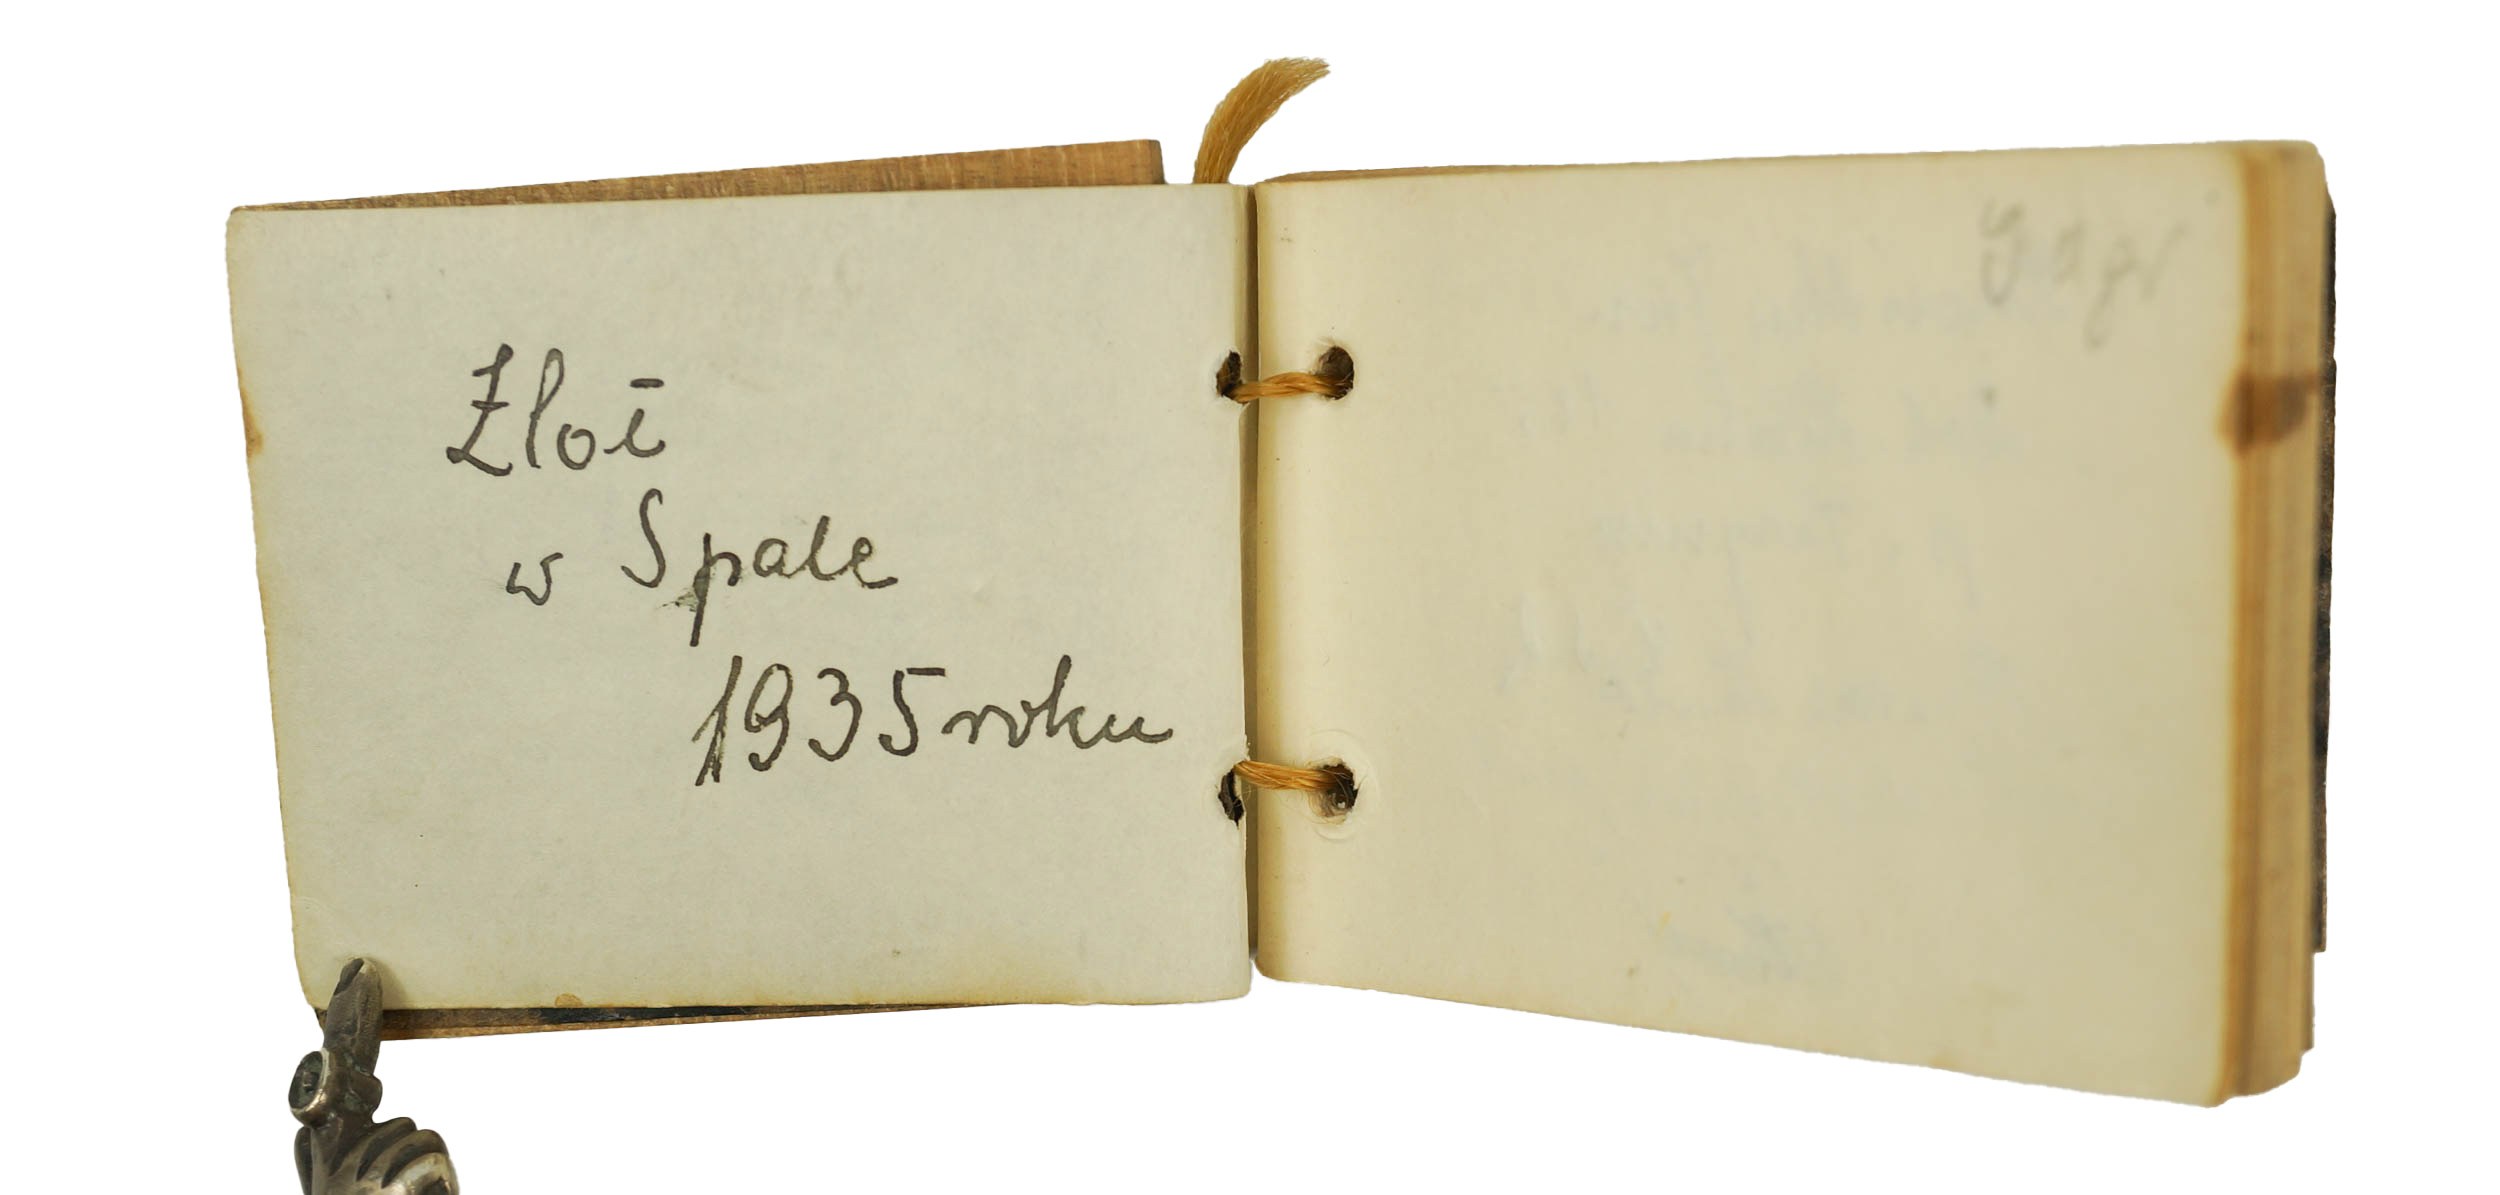 Zlot
w Spale
1935 roku